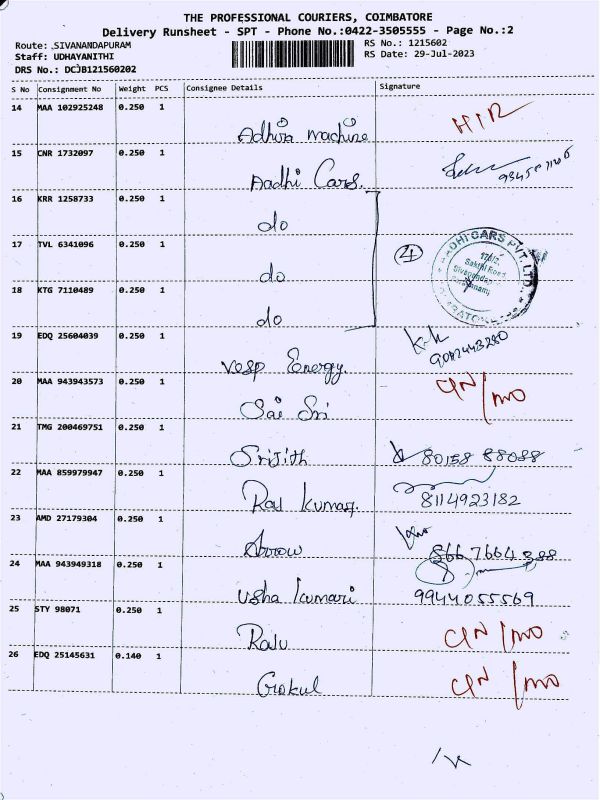 THE PROFESSIONAL COURIERS, COIMBATORE
Delivery Runsheet - SPT - Phone No.:0422-3505555 - Page No.:2
Route: SIVANANDAPURAM RS No.: 1215602
Staff: UDHAYANITHI RS Date: 29-Jul-2023
DRS No.: DCJB121560202
S No Consignment No Weight PCS Consignee Details Signature
14 MAA 102925248 0.250 1
Adhira machine
15 CNR 1732097 0.250 1
Aadhi Cars.
16 KRR 1258733 0.250 1
do
17 TVL 6341096 0.250 1
do
4
AADHI CARS PVT. LTD.
Sakthi Road
18 KTG 7110489 0.250 1
do
19 EDQ 25604039 0.250 1
Vesp Energy.
20 MAA 943943573 0.250 1
Sai Sri
21 TMG 200469751 0.250 1
Srijith 80158 88088
22 MAA 859979947 0.250 1
Raj Kumar. 8114923182
23 AMD 27179304 0.250 1
Arrow
24 MAA 943949318 0.250 1
Usha Kumari 9944055569
25 STY 98071 0.250 1
Raju
26 EDQ 25145631 0.140 1
Gokul